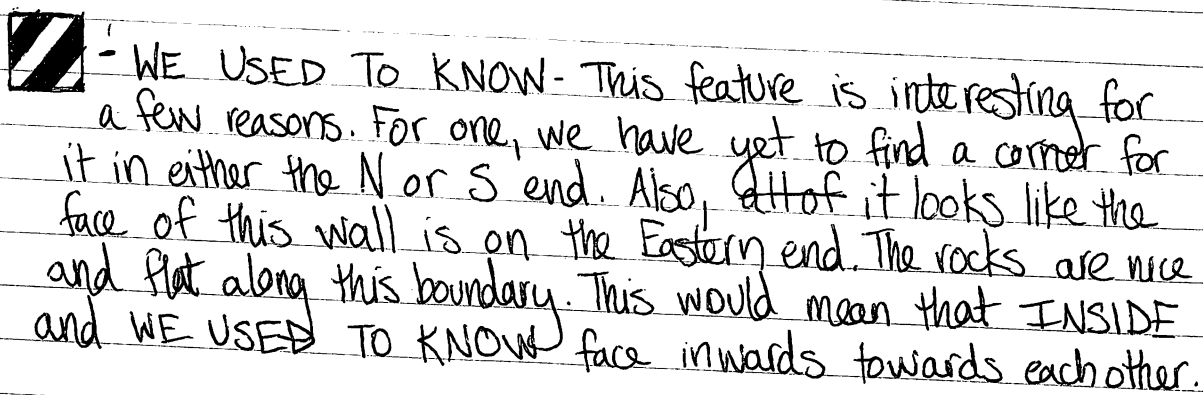 - WE USED TO KNOW - This feature is interesting for
a few reasons. For one, we have yet to find a corner for
it in either the N or S end. Also, all of it looks like the
face of this wall is on the Eastern end. The rocks are nice
and flat along this boundary. This would mean that INSIDE
and WE USED TO KNOW face inwards towards each other.